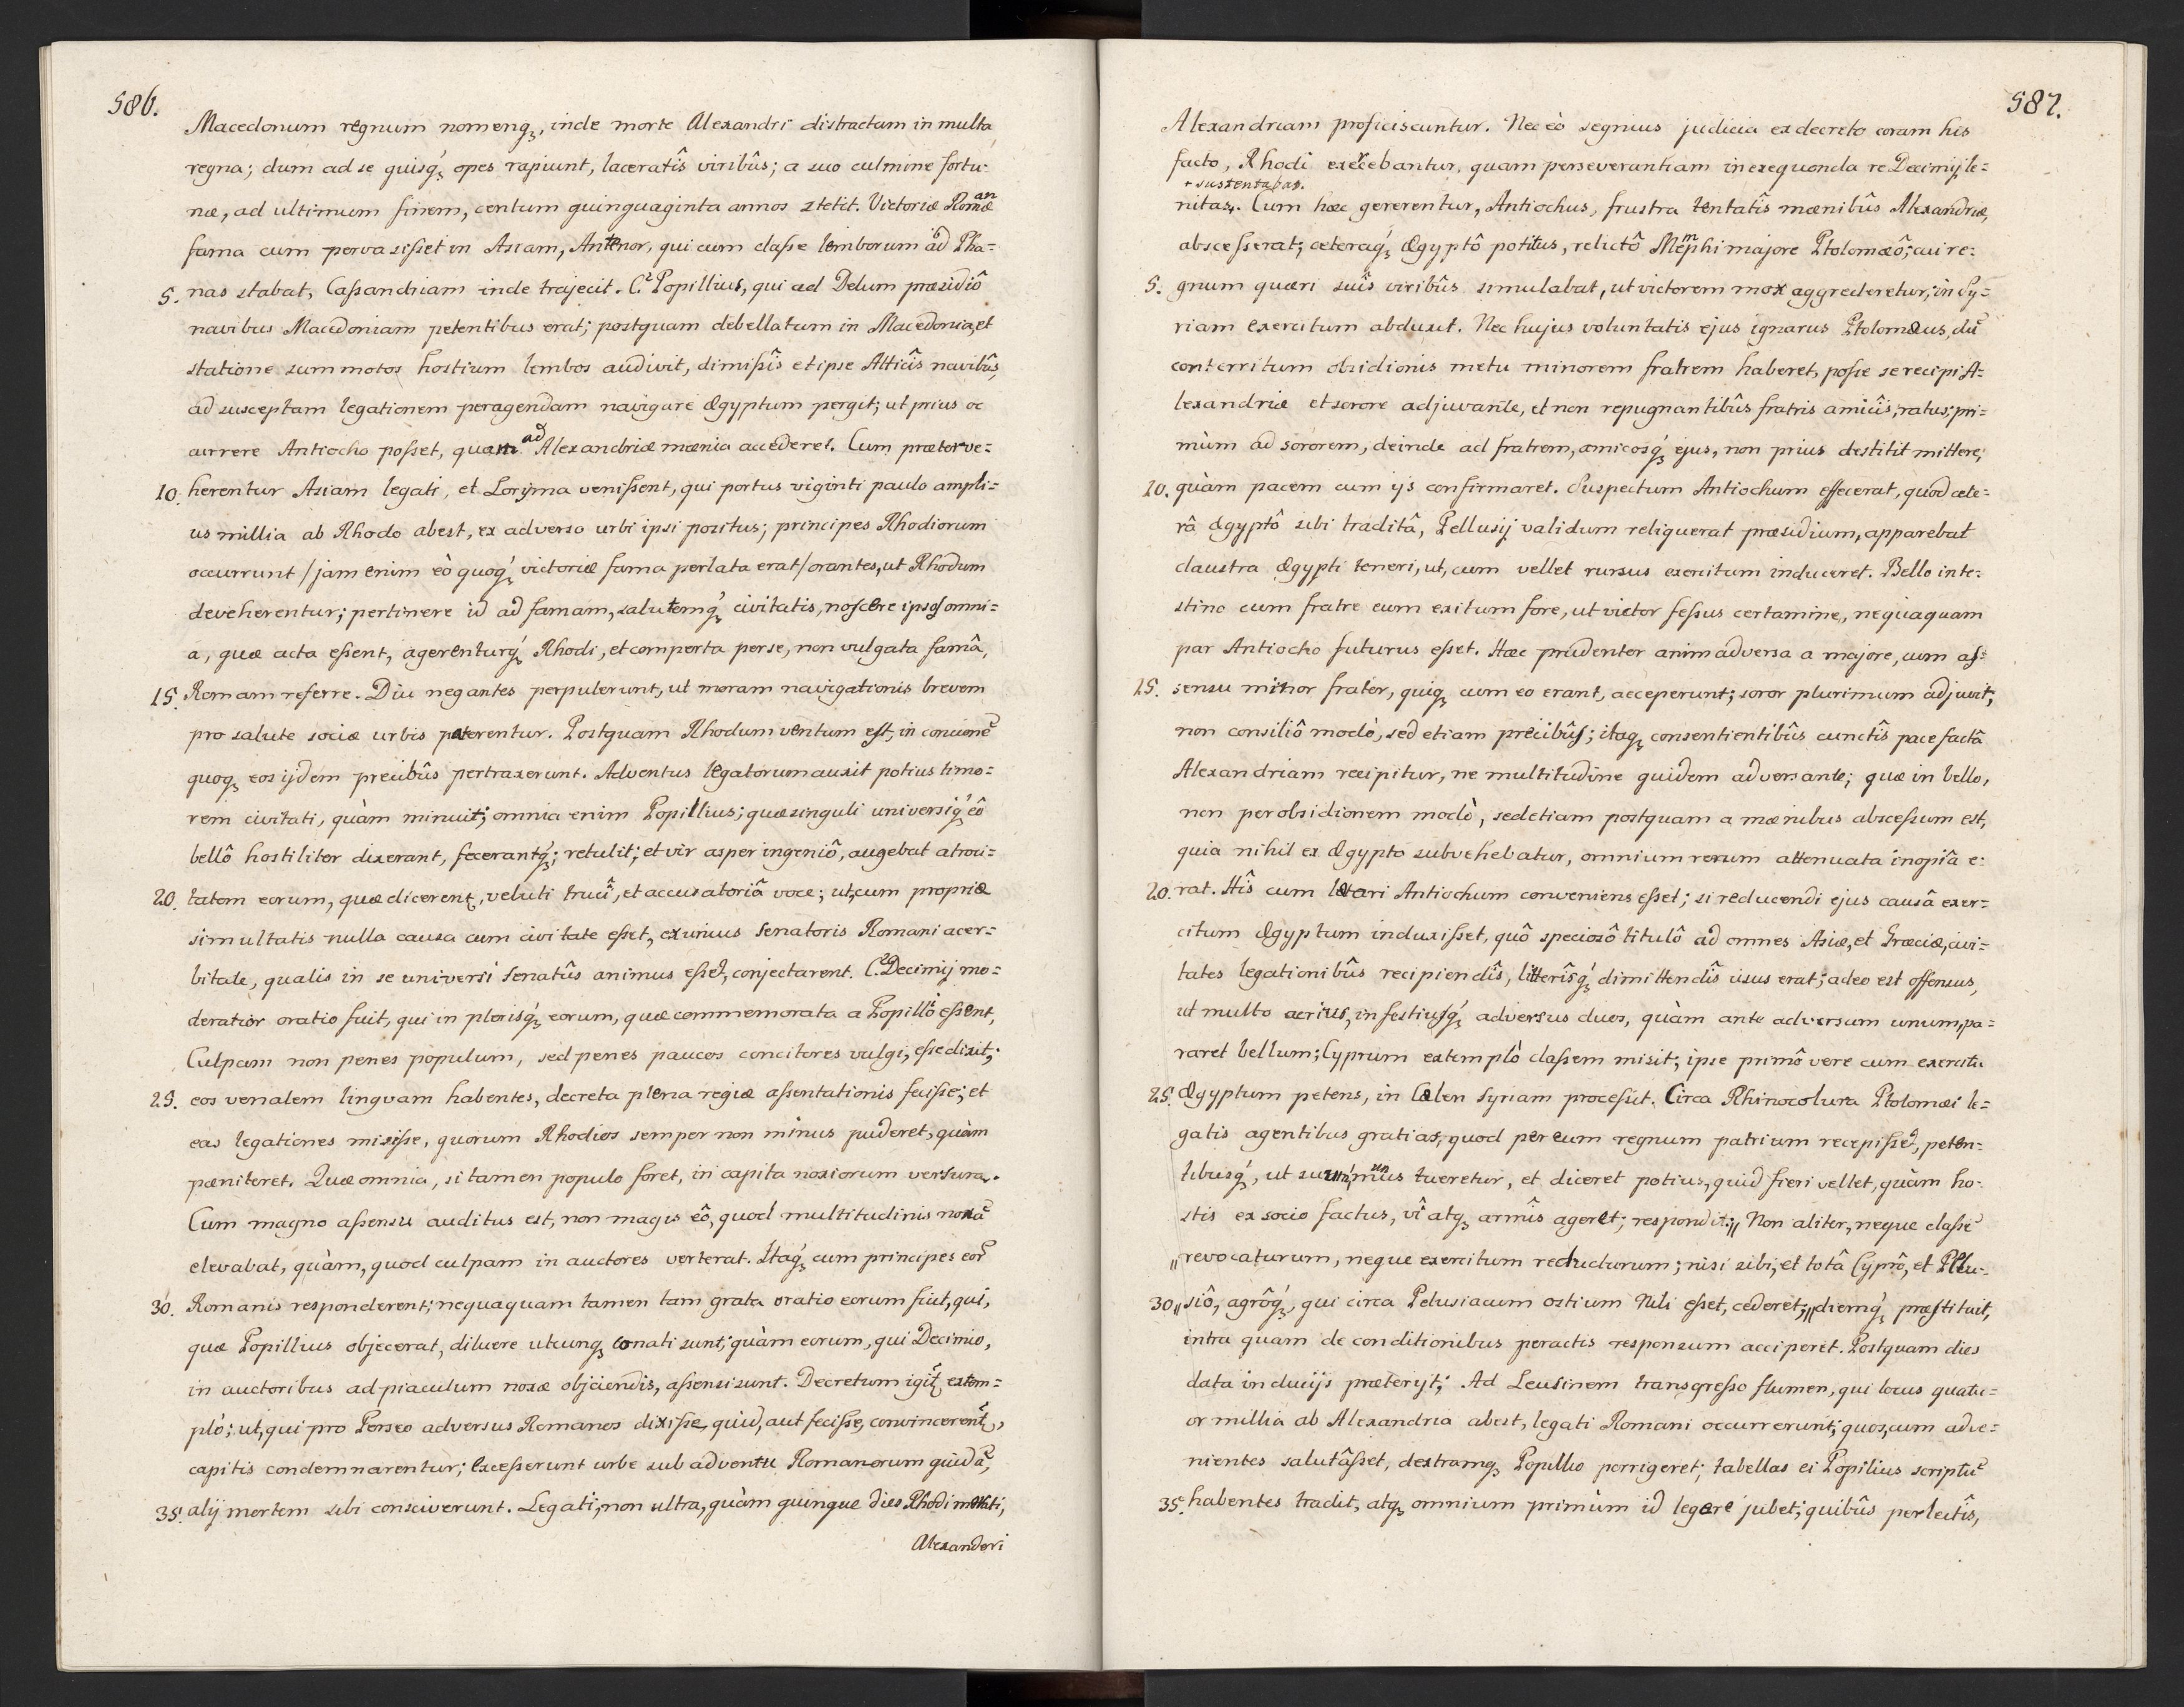 586.
Macedonum regnum nomenqꝫ, inde morte Alexandri distractum in multa
regna; dum ad se quisqꝫ́ opes rapiunt, laceratîs viribûs; a suo culmine fortu-
næ, ad ultimum finem, centum quinquaginta annos stetit. Victoriæ Romanæ
fama cum pervasisset in Asiam, Antenor, qui cum classe lemborum ad Pha=
5. nas stabat, Cassandriam inde trajecit. C. Popillius, qui ad Delum præsidiô
navibus Macedoniam petentibus erat; postquam debellatum in Macedonia, et
statione summotos hostium lembos audivit, dimissîs et ipse Atticîs navibûs,
ad susceptam legationem peragendam navigare Ægyptum pergit; ut prius oc
currere Antiocho posset, quam ad Alexandriæ mænia accederet. Cum præterve=
10. herentur Asiam legati, et Lorijma venissent, qui portus viginti paulo ampli=
us millia ab Rhodo abest, ex adverso urbi ipsi positus; principes Rhodiorum
occurrunt /jam enim eò quoqꝫ́ victoriæ fama perlata erat/ orantes, ut Rhodum
deveherentur; pertinere id ad famam, salutemqꝫ́ civitatis, noscere ipsos omni=
a, quæ acta essent, agerenturqꝫ́ Rhodi, et comperta per se, non vulgata famâ,
15. Romam referre. Diu negantes perpulerunt, ut moram navigationis brevem
pro salute sociæ urbis paterentur. Postquam Rhodum ventum est, in concionē
quoqꝫ eos ijdem precibûs pertraxerunt. Adventus legatorum auxit potius timo=
rem civitati, quàm minuit; omnia enim Popillius; quæ singuli universiqꝫ́ eô
bellô hostiliter dixerant, fecerantqꝫ́; retulit; et vir asper ingeniô, augebat atroci=
20. tatem eorum, quæ dicerent, veluti trucî, et accusatoriâ voce; ut, cum propriæ
simultatis nulla causa cum civitate esset, ex unius Senatoris Romani acer=
bitate, qualis in se universi Senatûs animus esset, conjectarent. C. Decimij mo=
deratior oratio fuit, qui in plerisqꝫ́ eorum, quæ commemorata a Popillô essent,
Culpam non penes populum, sed penes paucos concitores vulgi, esse dixit;
25. eos venalem linguam habentes, decreta plena regiæ assentationis fecisse; et
eas legationes misisse, quorum Rhodios semper non minus puderet, quàm
pæniteret. Quæ omnia, si tamen populo foret, in capita noxiorum versura.
Cum magno assensu auditus est, non magis eô, quod multitudinis noxā
elevabat, quàm, quod culpam in auctores verterat. Itaqꝫ́ cum principes eor̄
30. Romanis responderent; nequaquam tamen tam grata oratio eorum fuit, qui,
quæ Popillius objecerat, diluere utcunqꝫ conati sunt; quàm eorum, qui Decimio,
in auctoribus ad piaculum noxæ objciendis, assensi sunt. Decretum igit̄ extem=
plò; ut, qui pro Perseo adversus Romanos dixisse quid, aut fecisse, convincerent̄,
capitis condemnarentur; Excesserunt urbe sub adventu Romanorum quidā,
35. alij mortem sibi consciverunt. Legati, non ultra, quàm quinque dies Rhodi morati,
Alexandri
587.
Alexandriam proficiscuntur. Nec eò segnius judicia ex decreto coram his
facto, Rhodi exercebantur, quam perseverantiam in exequenda re Decimij le=
+ sustentabat.
nitas+. Cum hæc gererentur, Antiochus, frustra tentatîs mænibûs Alexandriæ,
abscesserat; ceteraqꝫ́ Ægyptô potitus, relictô Memphi majore Ptolomæô; cui re=
5. gnum quæri suîs viribûs simulabat, ut victorem mox aggrederetur; in Sy=
riam exercitum abduxit. Nec hujus voluntatis ejus ignarus Ptolomæus, dū
conterritum obsidionis metu minorem fratrem haberet, posse se recipi A=
lexandriæ et sorore adjuvante, et non repugnantibûs fratris amicîs, ratus; pri=
mùm ad sororem, deinde ad fratrem, amicosqꝫ́ ejus, non prius destitit mittere,
10. quàm pacem cum ijs confirmaret. Suspectum Antiochum effecerat, quod cete=
râ Ægyptô sibi traditâ, Pellusij validum reliquerat præsidium, apparebat
claustra Ægypti teneri, ut, cum vellet rursus exercitum induceret. Bello inte=
stino cum fratre eum exitum fore, ut victor fessus certamine, nequaquam
par Antiocho futurus esset. Hæc prudenter animadversa a majore, cum as=
15. sensu minor frater, quiqꝫ cum eo erant, acceperunt; soror plurimum adjuvit,
non consiliô modò, sed etiam precibûs; itaqꝫ consentientibûs cunctîs pace factâ
Alexandriam recipitur, ne multitudine quidem adversante; quæ in bello,
non per obsidionem modò, sed etiam postquam a mænibus abscessum est,
quia nihil ex Ægypto subvehebatur, omnium rerum attenuata inopiâ e=
20. rat. Hîs cum lætari Antiochum conveniens esset; si reducendi ejus causâ exer=
citum Ægyptum induxisset, quô speciosô titulô ad omnes Asiæ, et Græciæ, civi=
tates legationibûs recipiendîs, litterîsqꝫ́ dimittendîs usus erat; adeo est offensus,
ut multo acrius, infestiusqꝫ́ adversus duos, quàm ante adversum unum, pa=
raret bellum; Cyprum extemplò classem misit; ipse primô vere cum exercitu
25. Ægyptum petens, in Cælen Syriam processit. Circa Rhinocolura Ptolomæi le=
gatis agentibus gratias, quod per eum regnum patrium recepisset, peten=
tibusqꝫ́, ut suum munus tueretur, et diceret potius, quid fieri vellet, quàm ho=
stis ex socio factus, vî atqꝫ armîs ageret; respondit: „ Non aliter, neque classē
„ revocaturum, neque exercitum reducturum; nisi sibi, et totâ Cyprô, et Pelu=
30. „ siô, agrôqꝫ́, qui circa Pelusiacum ostium Nili esset, cederet; „ diemqꝫ́ præstituit,
intra quam de conditionibus peractis responsum acciperet. Postquam dies
data inducijs præterijt; Ad Leusinem transgresso flumen, qui locus quatu=
or millia ab Alexandria abest, legati Romani occurrerunt; quos, cum adve=
nientes salutâsset, dextramqꝫ Popillio porrigeret; tabellas ei Popilius scriptū
35. habentes tradit, atqꝫ omnium primùm id legere jubet; quibûs perlectîs,